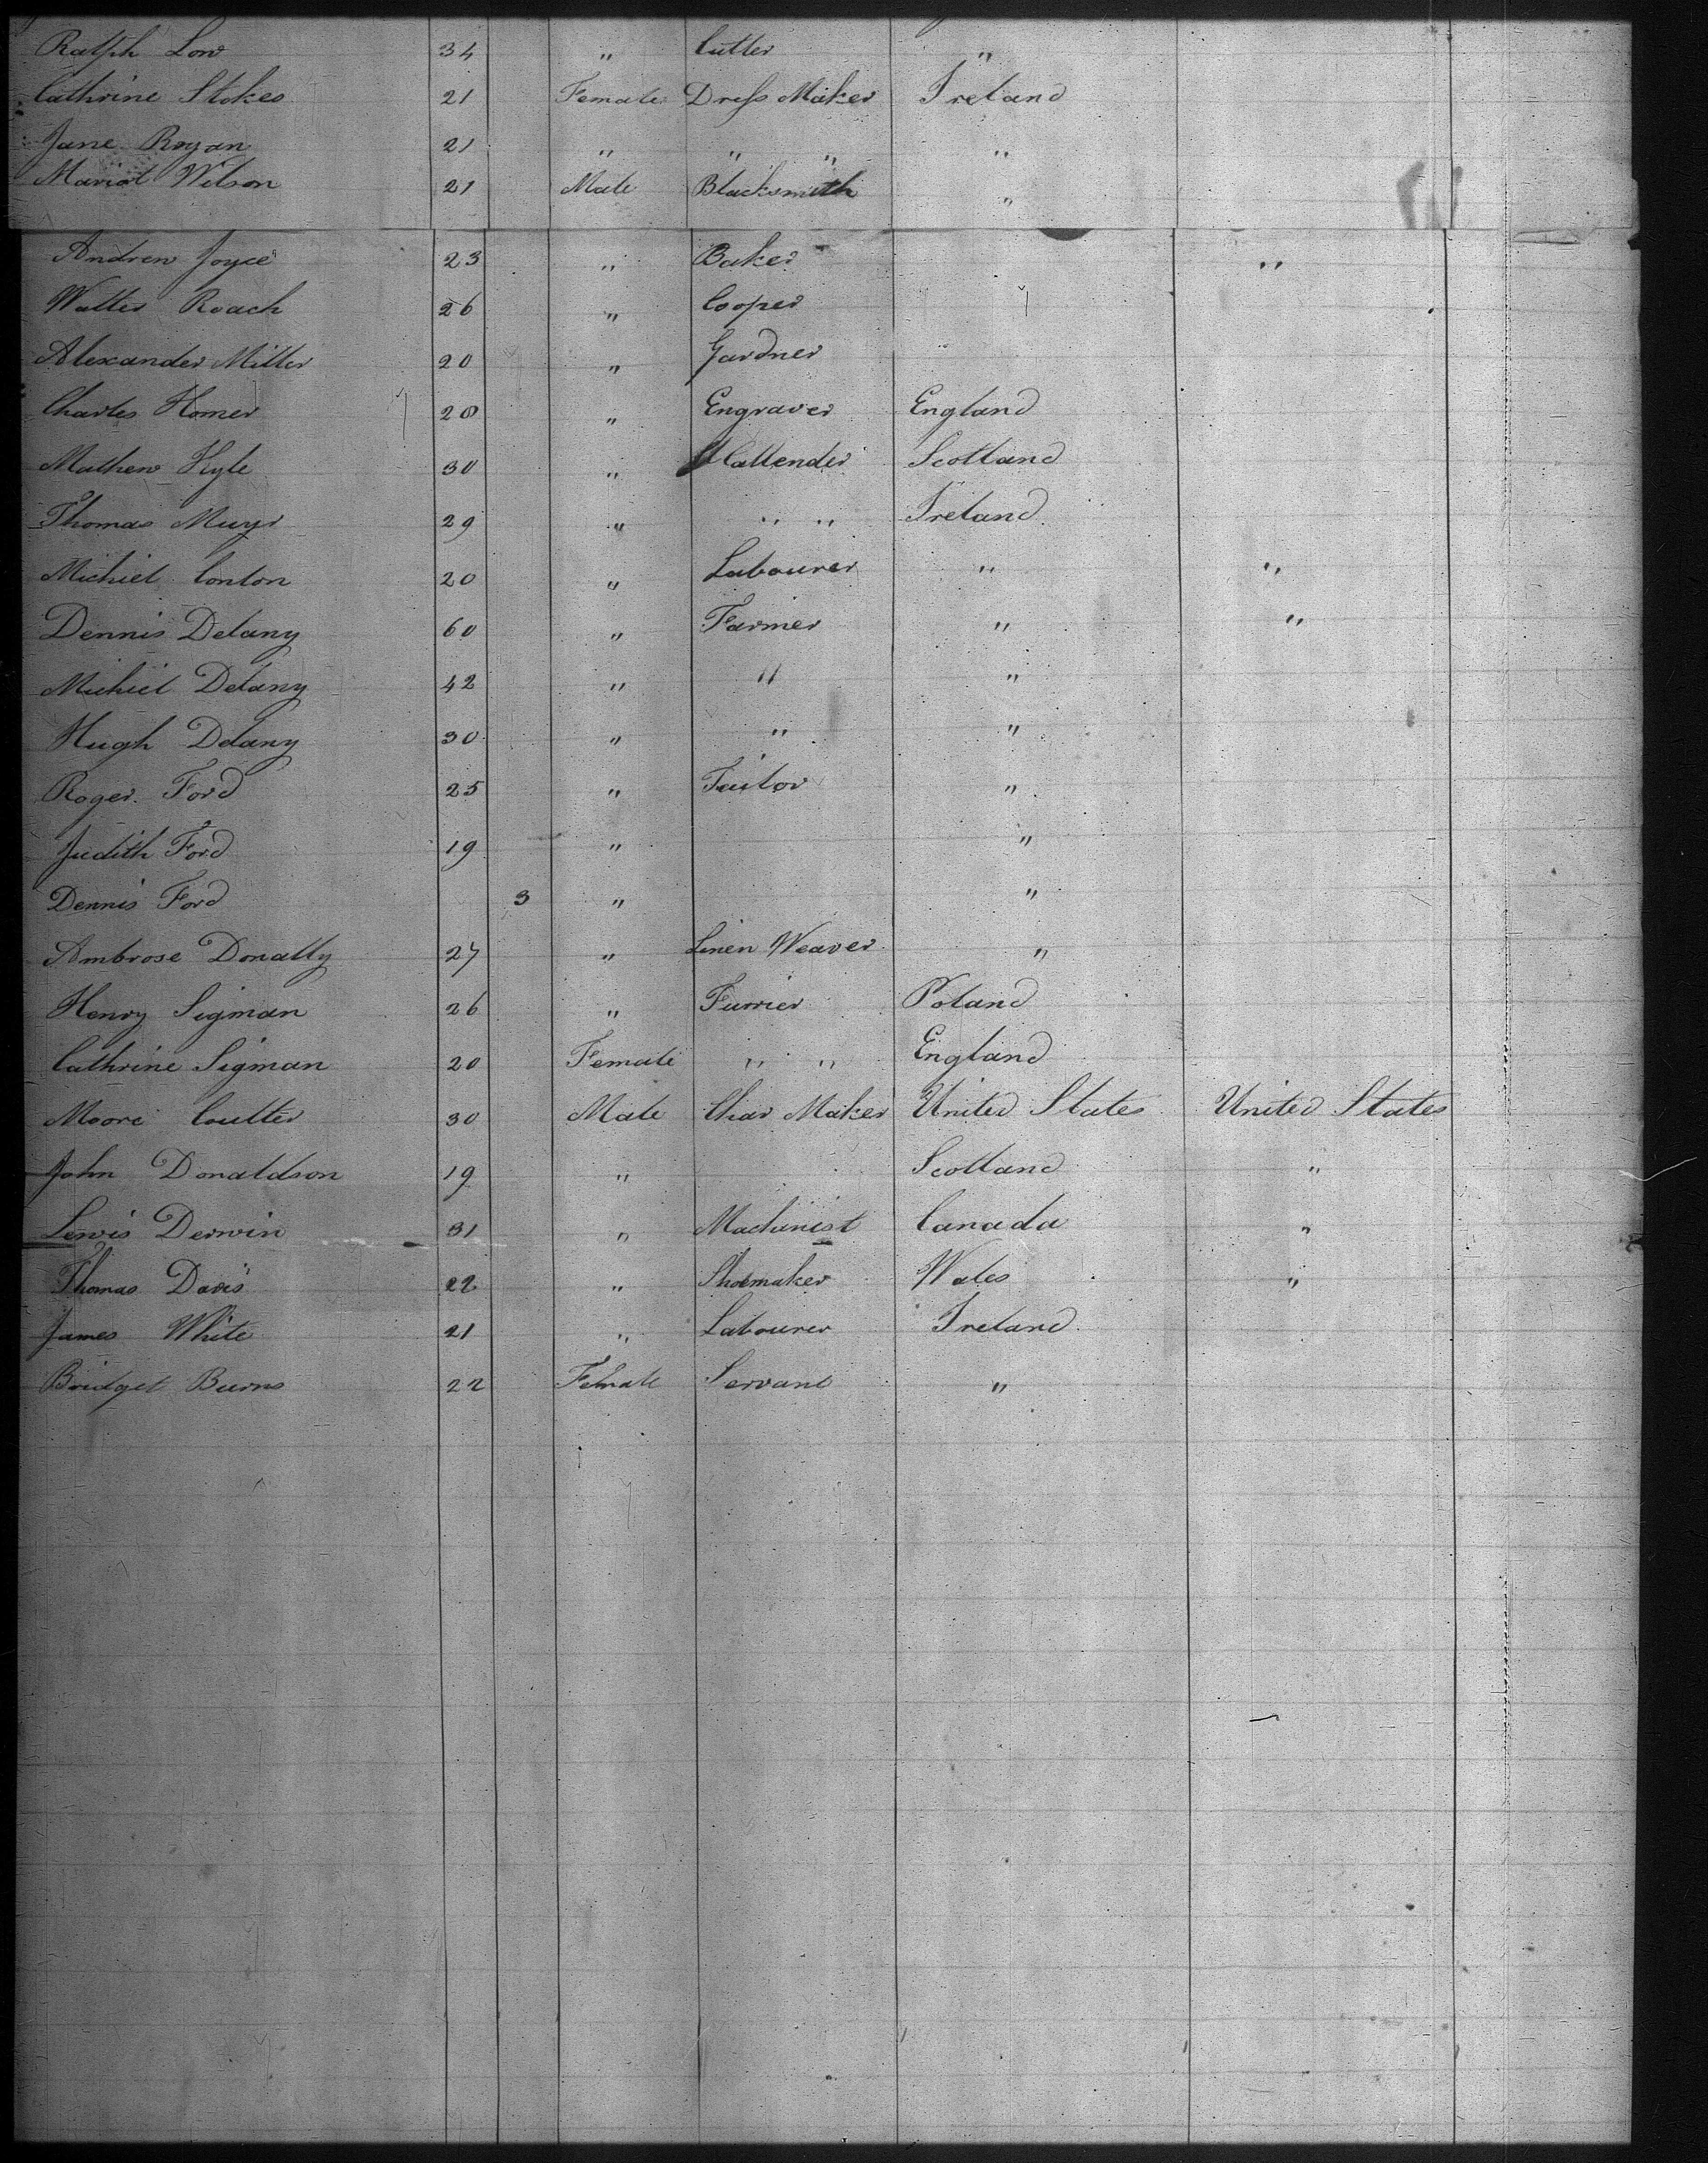 Ralph Low 34 " Cutler "
Cathrine Stokes 21 Female Dress Maker Ireland
Jane Royan 21 " " " "
Mariot Wilson 21 Male Blacksmith "
Andrew Joyce 23 " Baker "
Walter Roach 26 " Cooper
Alexander Miller 20 " Gardner
Charles Homer 28 " Engraver England
Mathew Kyle 30 " Callender Scotland
Thomas Muyr 29 " " " Ireland
Michiel Conlon 20 " Labourer " "
Dennis Delany 60 " Farmer " "
Michiel Delany 42 " " "
Hugh Delany 30 " " "
Roger Ford 25 " Tailor "
Judith Ford 19 " "
Dennis Ford 3 " "
Ambrose Donally 27 " Linen Weaver "
Henry Sigman 26 " Furrier Poland
Cathrine Sigman 20 Female " " England
Moore Coulter 30 Male Char Maker United States United States
John Donaldson 19 " Scotland "
Lewis Derwin 31 " Machinist Canada "
Thomas Davis 22 " Shoemaker Wales "
James White 21 " Labourer Ireland
Bridget Burns 22 Female Servant "